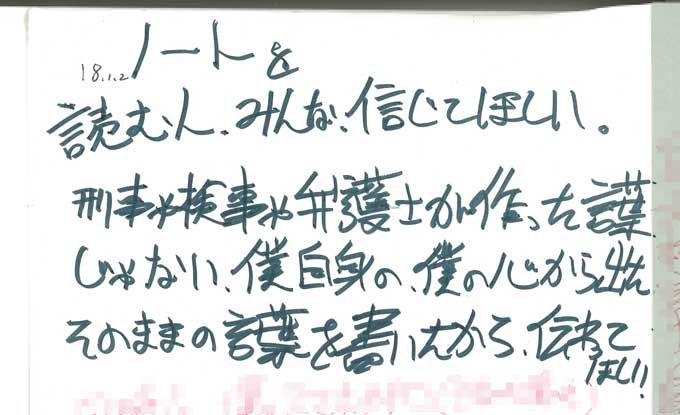 18.1.2 ノートを
読む人、みんな、信じてほしい。
刑事や検事や弁護士が作った言葉
じゃない、僕自身の、僕の心から出た
そのままの言葉を書いたから、伝わって
ほしい